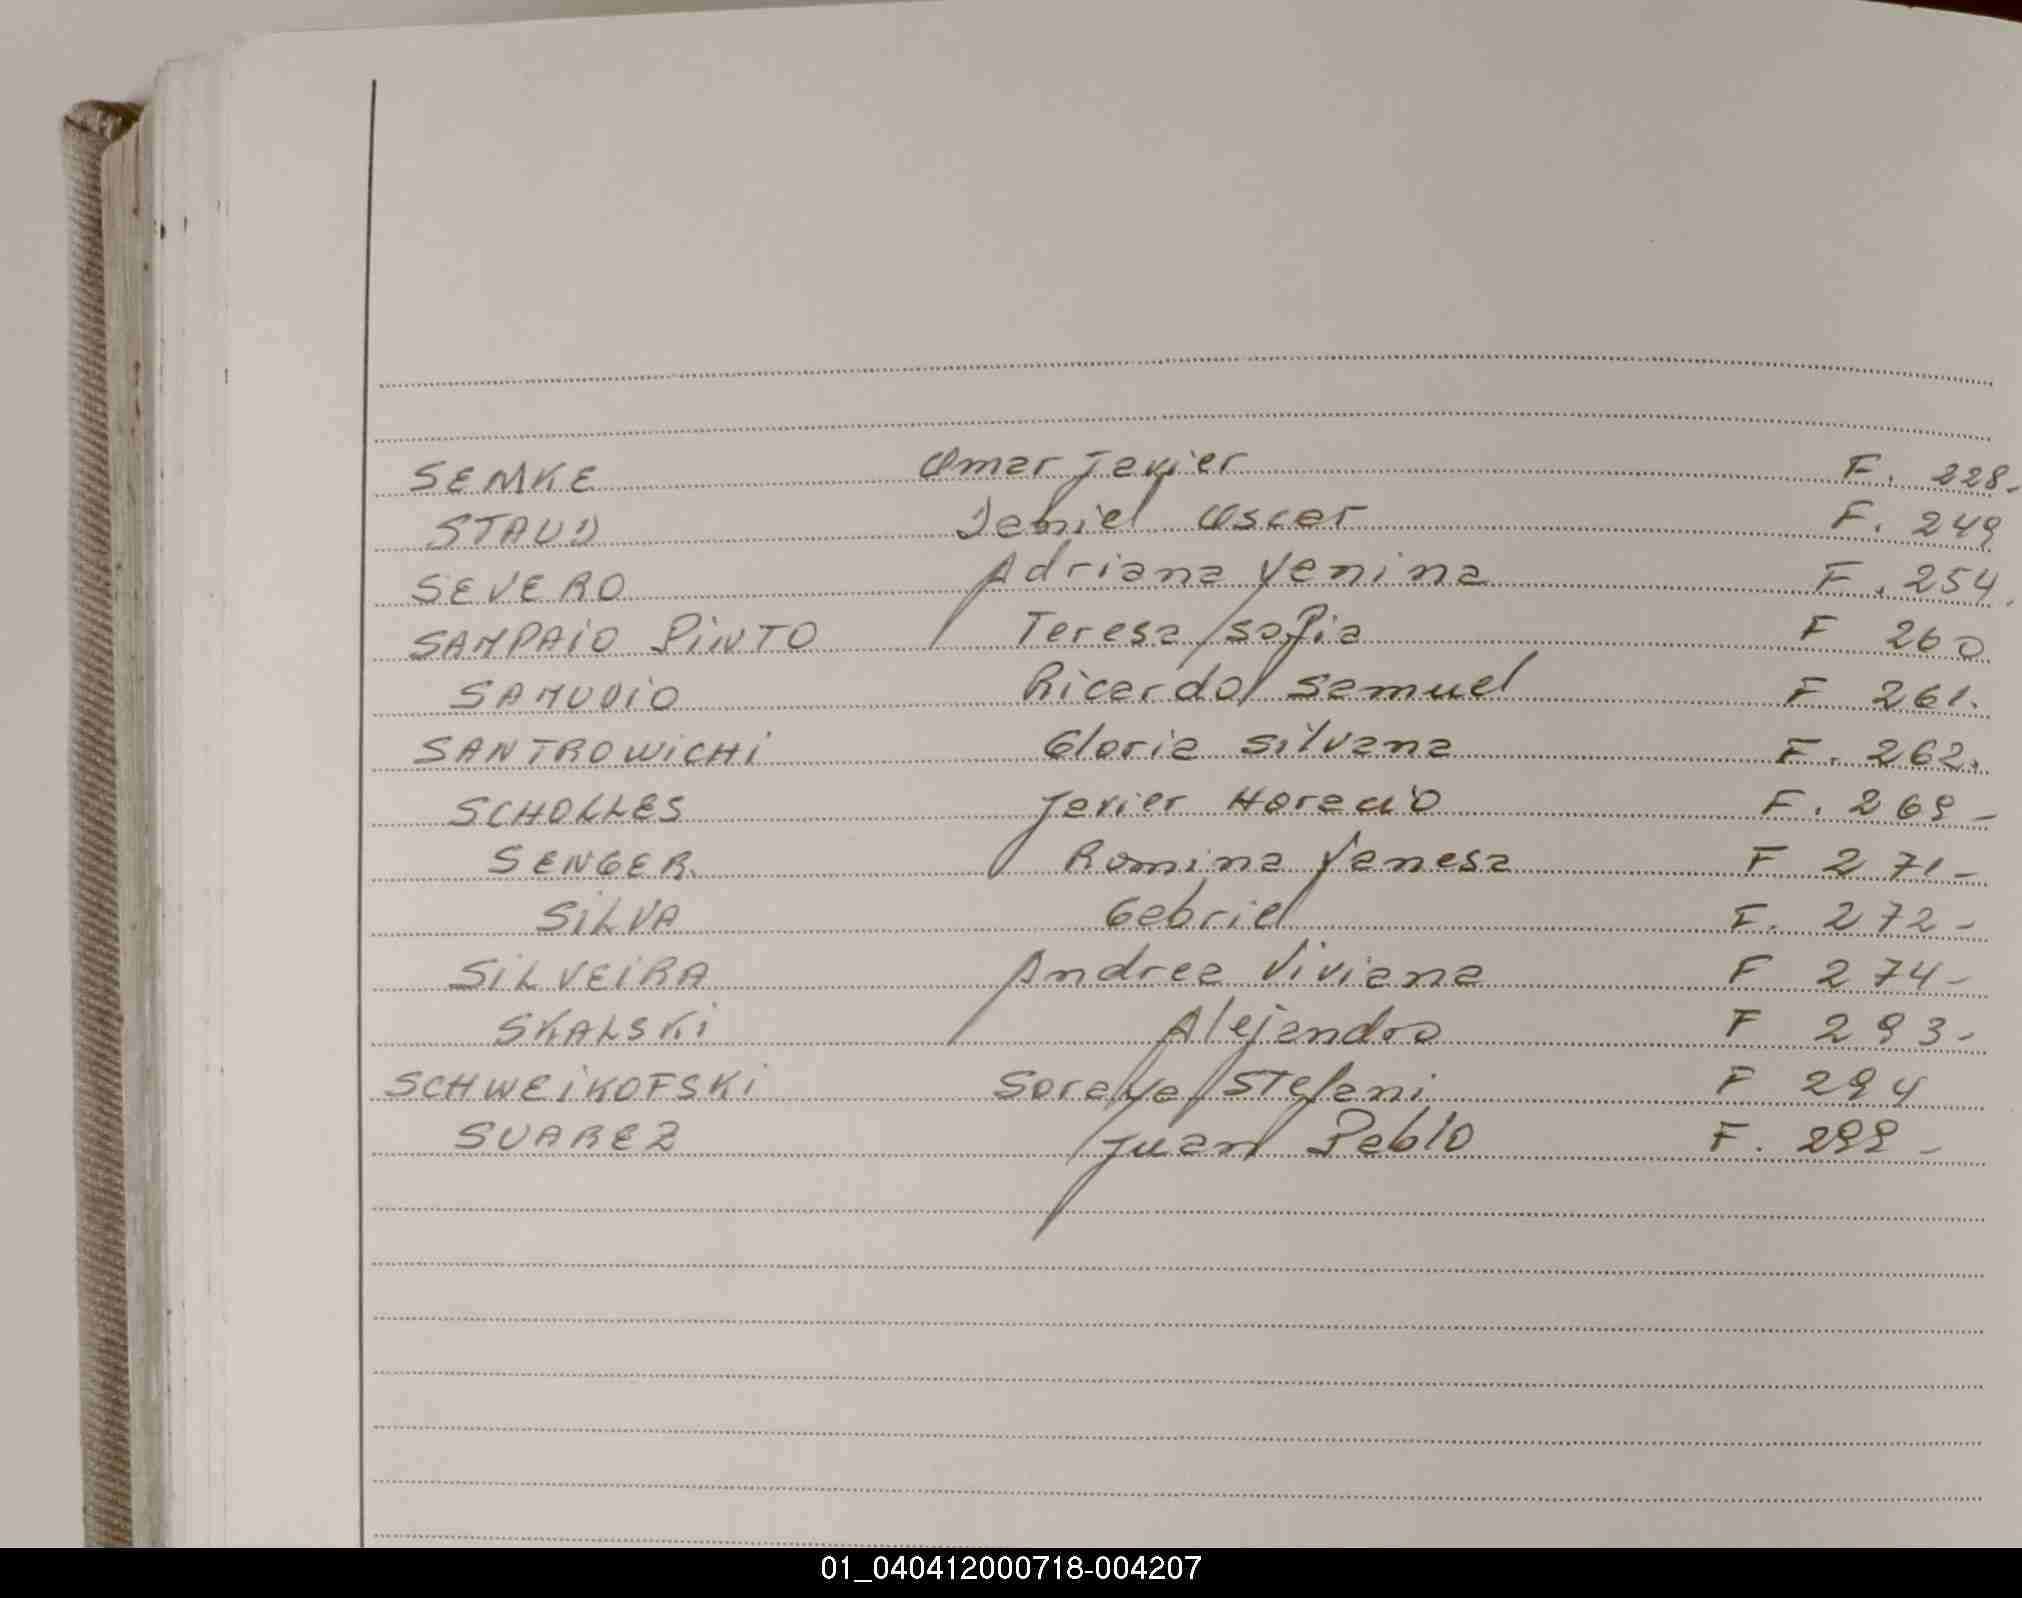 SEMKE Omar Javier F. 228-
STAUD Daniel Oscar F. 249
SEVERO Adriana Yanina F. 254.
SAMPAIO PINTO Teresa Sofia F 260
SAMUDIO Ricardo Samuel F 261.
SANTROWICHI Gloria Silvana F. 262.
SCHOLLES Javier Horacio F. 269-
SENGER. Romina Vanesa F 271-
SILVA Gabriel F. 272-
SILVEIRA Andrea Viviana F 274-
SKALSKI Alejandro F 293-
SCHWEIKOFSKI Soraya Stefani F 294
SUAREZ Juan Pablo F. 299-
01_040412000718-004207